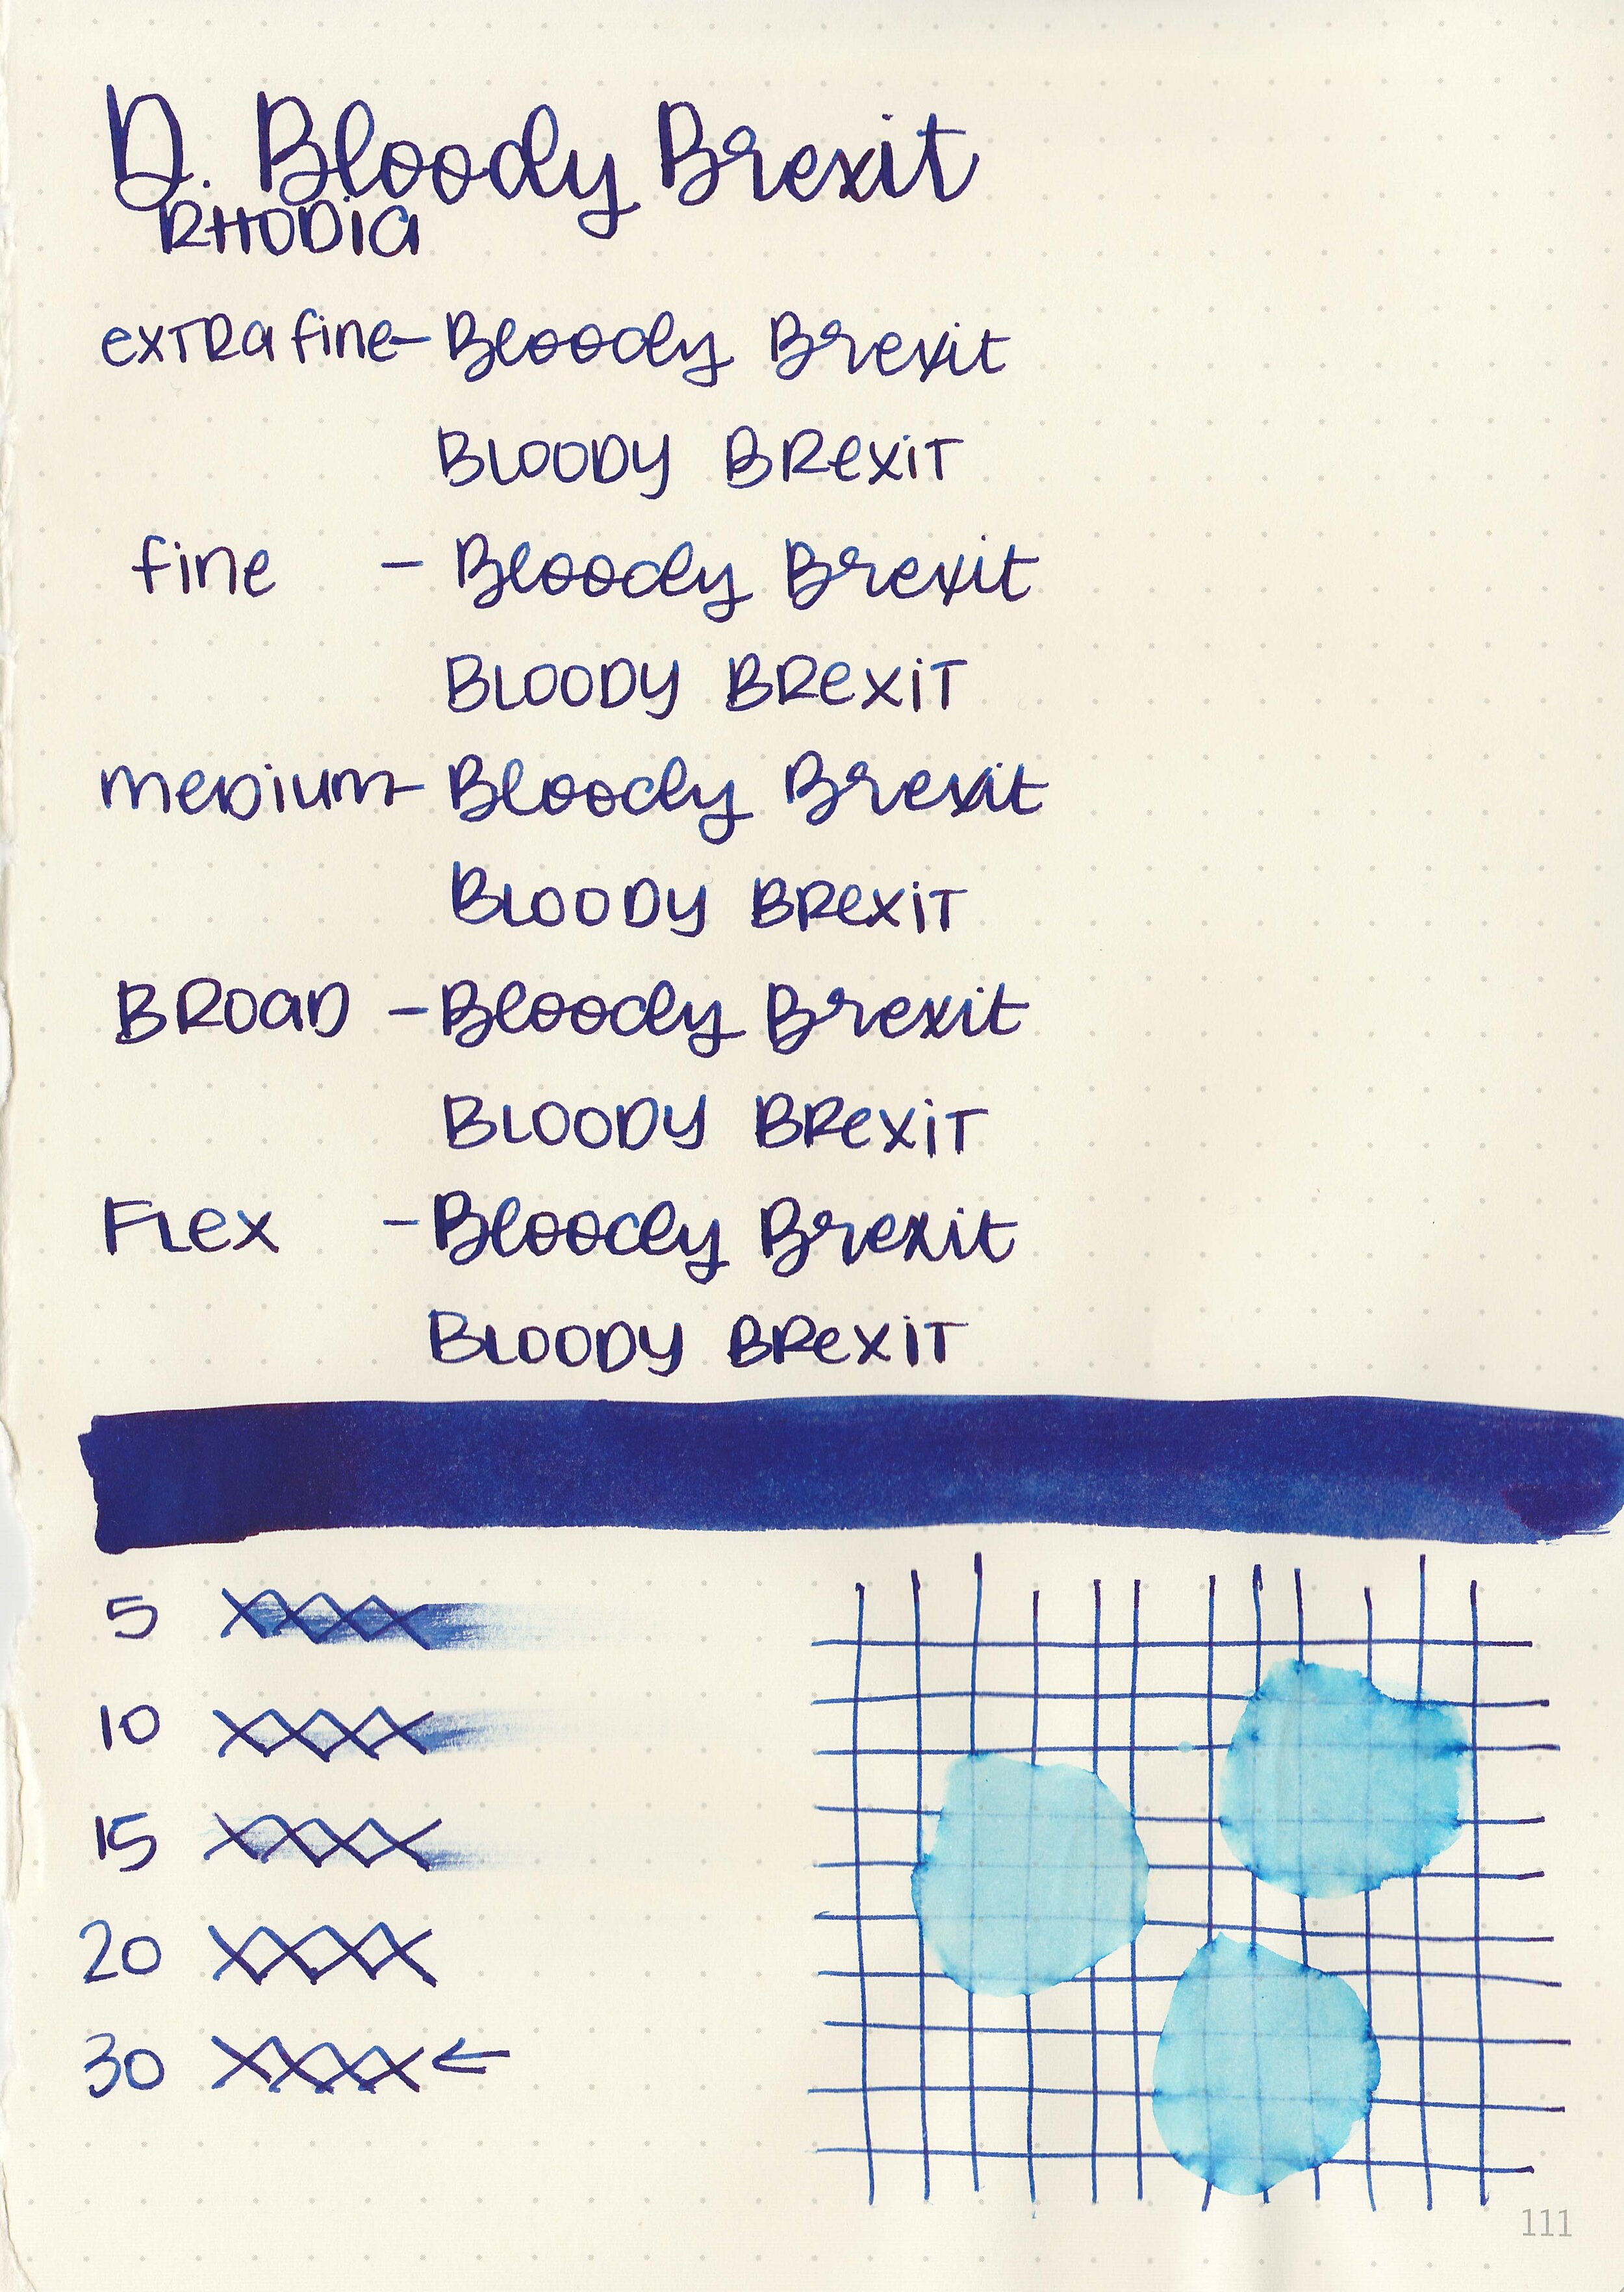 D. Bloody Brexit
RHODIA
extra fine - Bloody Brexit
BLOODY BRexiT
fine - Bloody Brexit
BLOODY BRexiT
meDium - Bloody Brexit
BLOODY BRexiT
BROaD - Bloody Brexit
BLOODY BRexiT
FLex - Bloody Brexit
BLOODY BRexiT
5 XXXX
10 XXXX
15 XXXX
20 XXXX
30 XXXX ←
111